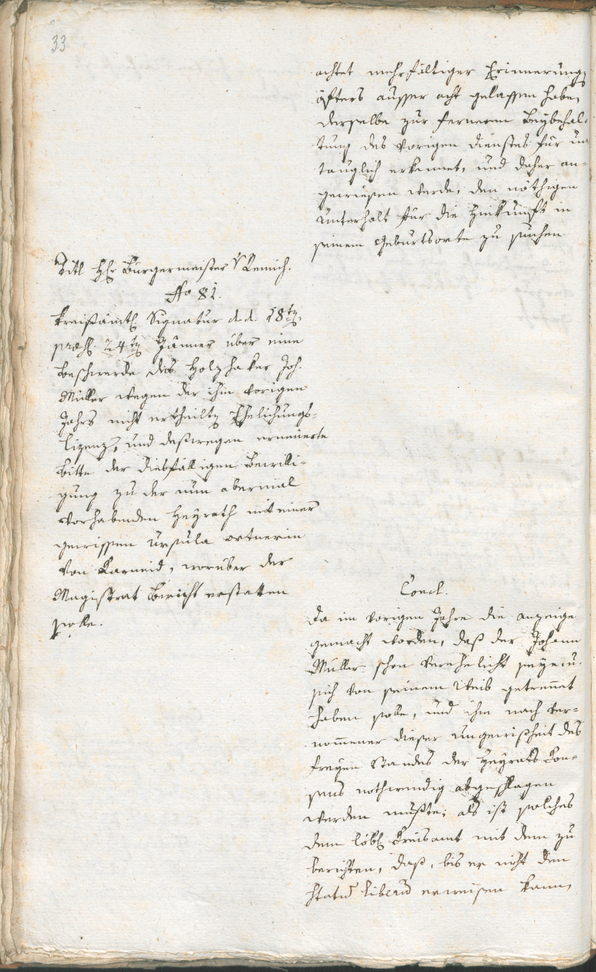 33
achtet mehrfältiger Erinnerung
öfters ausser acht gelassen habe,
derselbe zur ferneren Beybehal-
tung des vorigen Dienstes für un
tauglich erkennt, und daher an-
gewiesen werde, den nöthigen
Unterhalt für die Zukunft in
seinem Geburtsorte zu suchen.
Titl H: Bürgermeister v Remich.
No 81.
Kreisämtl Signatur d.d. 18t
praes. 24t Jänner über eine
Beschwerde des Holzhaker Joh.
Müller wegen der ihm vorigen
Jahrs nicht ertheilten Ehelichungs-
lizenz, und deswegen erneuerte
Bitte der diesfälligen Bewilli-
gung zu der nun abermal
vorhabenden Heyrath mit einer
gewissen Ursula Ortnerin
von Karneid, worüber der
Magistrat Bericht erstatten
solle.
Concl.
Da im vorigen Jahre die Anzeige
gemacht worden, daß der Johann
Müller schon verehelicht seye, u.
sich von seinem Weib getrennet
haben solle, und ihm nach ver-
nommener dieser Ungewißheit des
freyen Standes der Heyraths Con-
sens nothwendig abgeschlagen
werden mußte; als ist solches
dem löbl Kreisamt mit dem zu
berichten, daß, bis er nicht den
statum liberum erweisen kann,